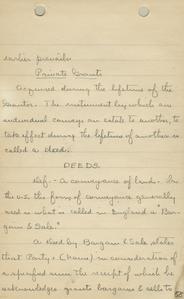 earlier periods.
Private Grants
Acquired during the lifetime of the
Grantor. The instrument by which one
individual conveys an estate to another, to
take effect during the lifetime of another is
called a deed.
DEEDS.
Def. - A conveyance of land. In
the U.S. the form of conveyance generally
used is what is called in England a "Bar-
gain & Sale."
A deed by Bargain & Sale states
that Party 1. (name) in consideration of
a specified sum the receipt of which he
acknowledges grants bargains & sells to